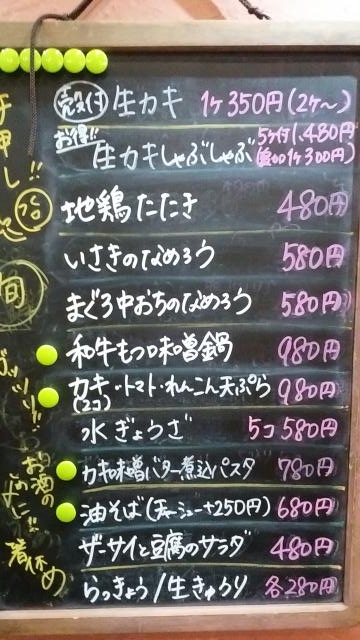 殻付 生カキ 1ケ350円(2ケ〜)
お得!! 5ケ付1,480円
生カキしゃぶしゃぶ (追加1ケ300円)
地鶏たたき 480円
いさきのなめろう 580円
まぐろ中おちのなめろう 580円
和牛もつ味噌鍋 980円
カキ・トマト・れんこん天ぷら 980円
(2コ)
水ぎょうざ 5コ580円
カキ味噌バター煮込パスタ 780円
油そば(チャーシュー+250円) 680円
ザーサイと豆腐のサラダ 480円
らっきょう/生きゅうり 各280円
旬
ガッツリ!!
お酒の
箸休め